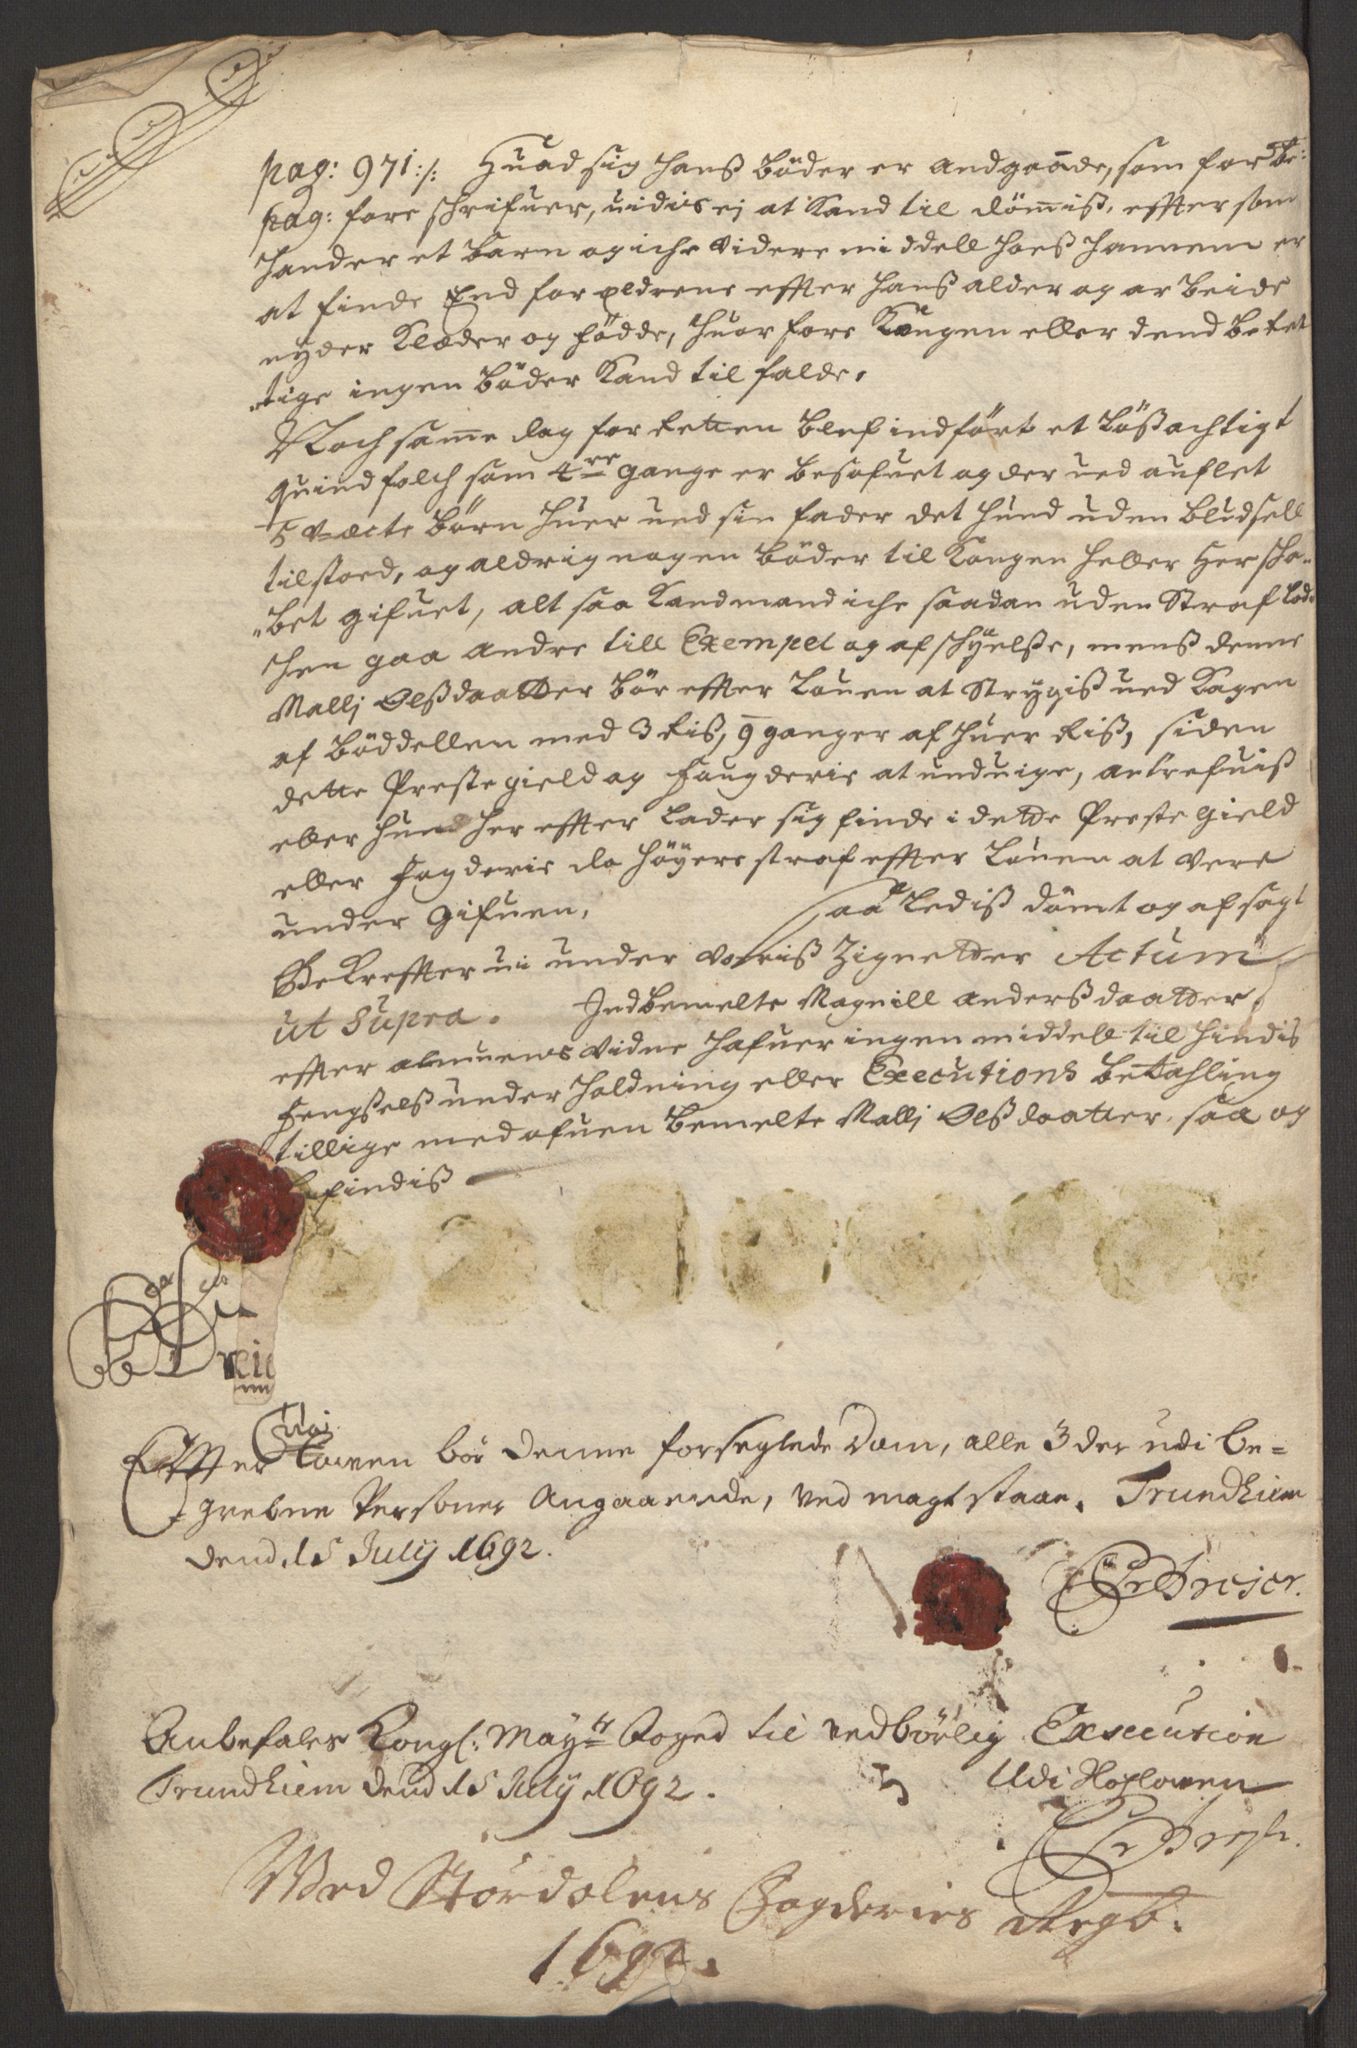 pag: 971:/: Huad sig hans böder er andgaaende, som forbe:
pag: fore schrifuer, uidis ej at Kand til dömmis, effter som
hand er et barn og iche videre middell hoes hannem er
at finde End forældrene effter hans alder og arbeide
nyder Klæder og födde, huor fore Kongen eller dend beret
tige ingen böder Kand til falde.
Noch samme dag for Retten blef indfört et lösachtigt
quindfolch som 4re gange er besofuet og der ued auflet
5 uæcte börn huer ued sin fader det hund uden bludsell
tilstoed, og aldrig nogen böder til Kongen heller Herscha-
bet gifuet, alt saa Kand mand iche saadan uden Straf lade
schee gaa andre till Exempel og afschyelse, mens denne
Mallj Olssdaatter bör effter Louen at Strygis ued Kagen
af böddellen med 3 Ris, 9 ganger af huer Ris, siden
dette Prestegield og Fougderie at unduige, antrefuis
eller hun her effter lader sig finde i dette Prestegield
eller Fogderie da höyere straf effter Louen at vere
under gifuen. Saaledis dömt og afsagt
Bekreffter ui under voris Zignetter Actum
ut Supra. Indbemelte Magnill Andersdaatter
effter almuens vidne hafuer ingen middell til hindis
Fengsels underholdning eller Executions betahling
tillige med ofuen bemelte Mallj Olssdaatter saa og
befindis
Effter Lowen bör Denne forseglede Dom, alle 3 der udi be=
grebne Personer Angaaende, ved magt staae. Trundhiem
dend 15 July 1692.
Dreier.
Anbefales Kongl: Mayts Foged til vedbörlig Execution
Trundhiem dend 15 July 1692.
Dreyer.
Med Stördalens Fogderies Regb.
1692.